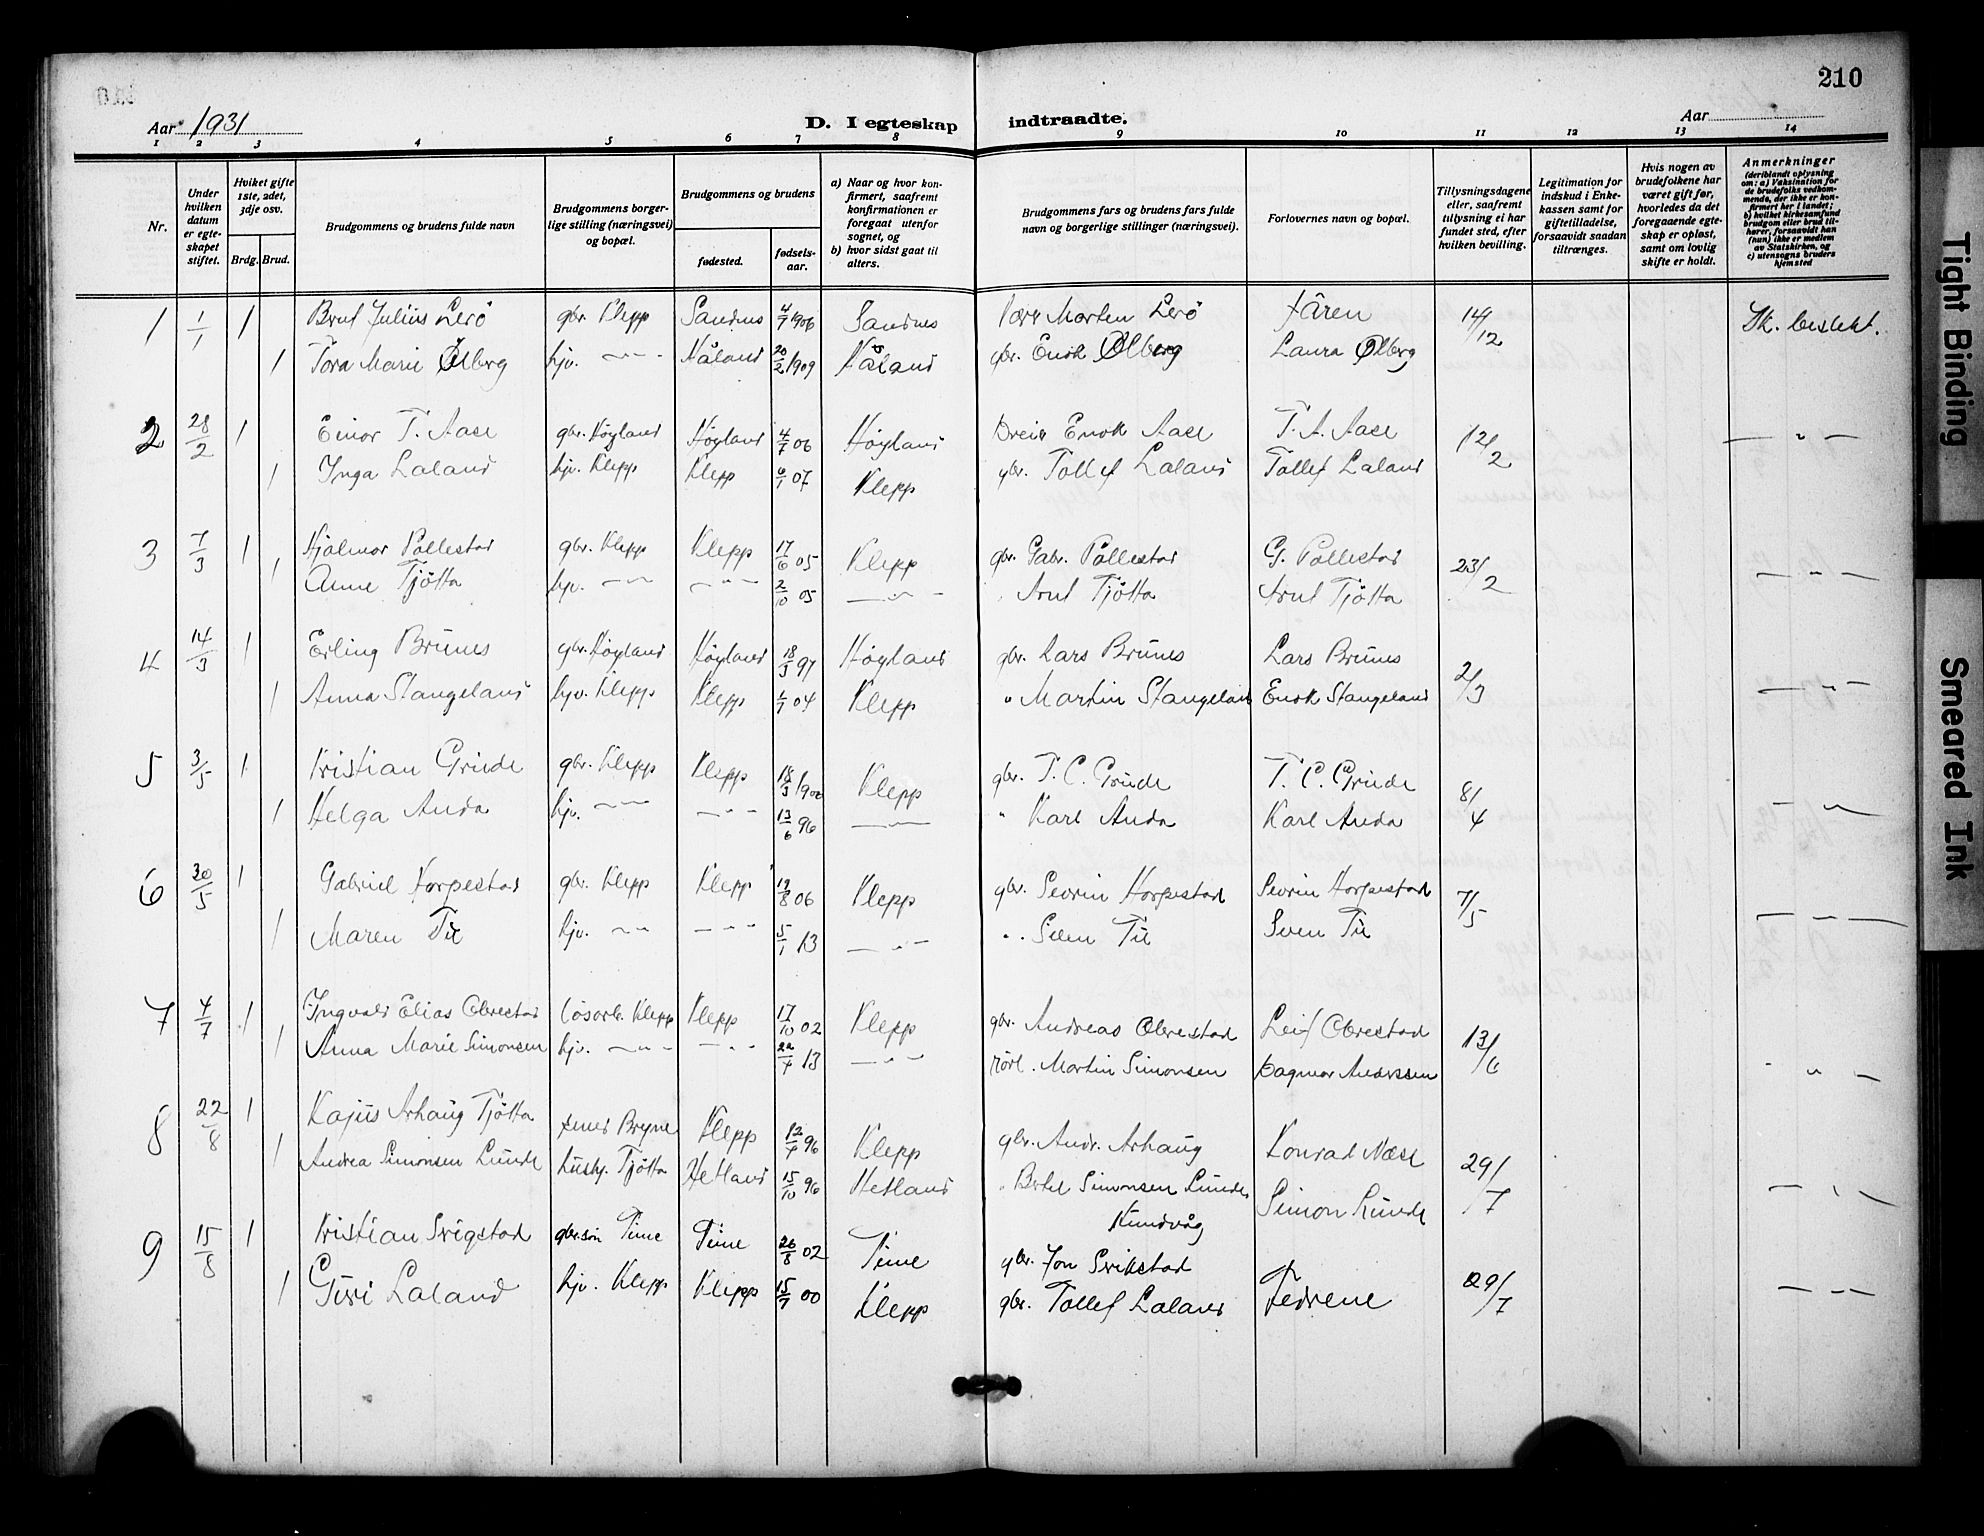 210
Aar 1931
D. I egteskap indtraadte.
Aar
1 2 3 4 5 6 7 8 9 10 11 12 13 14
Nr.
Under hvilken datum er egteskapet stiftet.
Hviket gifte 1ste, 2det, 3dje osv.
Brdg. Brud.
Brudgommens og brudens fulde navn
Brudgommens borgerlige stilling (næringsvei) og bopæl.
Brudgommens og brudens
fødested.
fødselsaar.
a) Naar og hvor konfirmert, saafremt konfirmationen er foregaat utenfor sognet, og
b) hvor sidst gaat til alters.
Brudgommens fars og brudens fars fulde navn og borgerlige stillinger (næringsvei).
Forlovernes navn og bopæl.
Tillysningsdagene eller, saafremt tillysning ei har fundet sted, efter hvilken bevilling.
Legitimation for indskud i Enkekassen samt for giftetilladelse, forsaavidt saadan tiltrænges.
Hvis nogen av brudefolkene har været gift før, hvorledes da det foregaaende egteskap er opløst, samt om lovlig skifte er holdt.
Anmerkninger (deriblandt oplysning om: a) Vaksination for de brudefolks vedkommende, der ikke er konfirmert her i landet; b) hvilket kirkesamfund brudgom eller brud tilhører, forsaavidt han (hun) ikke er medlem av Statskirken, og c) utensogns bruders hjemsted
1 1/1 1 Julius Lerö gbr. Klepp Sandnes 4/7 1906 Sandnes Morten Lerö 14/12
1 Tora Marie Ølberg hjv. — " — Håland 20/2 1909 Håland gbr. Enok Ølberg Laura Ølberg
2 28/2 1 Einar T. Aase gbr. Høyland Høyland 4/7 06 Høyland Enok Aase T. A. Aase 12/2 — " —
1 Inga Laland hjv. Klepp Klepp 6/1 07 Klepp gbr. Tollef Laland Tollef Laland
3 7/3 1 Hjalmar Pollestad gbr. Klepp Klepp 17/6 05 Klepp gbr. Gabr. Pollestad G. Pollestad 23/2 — " —
1 Anne Tjötta hjv. — " — — " — 2/10 05 — " — Arnt Tjötta Arnt Tjötta
4 14/3 1 Erling Brunes gbr. Høyland Høyland 18/3 97 Høyland gbr. Lars Brunes Lars Brunes 2/3 — " —
1 Anna Stangeland hjv. Klepp Klepp 1/7 04 Klepp " Martin Stangeland Enok Stangeland
5 3/5 1 Kristian Grude gbr. Klepp Klepp 18/3 1900 Klepp gbr. T. C. Grude T. C. Grude 8/4 — " —
1 Helga Anda hjv. — " — — " — 13/6 96 — " — " Karl Anda Karl Anda
6 30/5 1 Gabriel Horpestad gbr. Klepp Klepp 19/8 06 Klepp gbr. Sevrin Horpestad Sevrin Horpestad 7/5 — " —
1 Maren Tu hjv. — " — — " — 5/1 13 — " — " Sven Tu Sven Tu
7 4/7 1 Ingvald Elias Obrestad Klepp Klepp 17/10 02 Klepp gbr. Andreas Obrestad Leif Obrestad 13/6 — " —
1 Anna Marie Simonsen hjv. — " — — " — 22/4 13 — " — rörl. Martin Simonsen Dagmar Anderssen
8 22/8 1 Kajus Arhaug Tjötta Bryne Klepp 12/4 96 Klepp gbr. Andr. Arhaug Konrad Næse 29/7 — " —
1 Andrea Simonsen Lunde Tjötta Hetland 15/10 96 Hetland " Bertel Simonsen Lunde Simon Lunde
Hundvåg
9 15/8 1 Kristian Svigstad gbr.søn Time Time 26/8 02 Time gbr. Jon Svikstad 29/7 — " —
1 Guri Laland hjv. Klepp Klepp 15/7 00 Klepp gbr. Tollef Laland Fedrene
Tight Binding
Smeared Ink